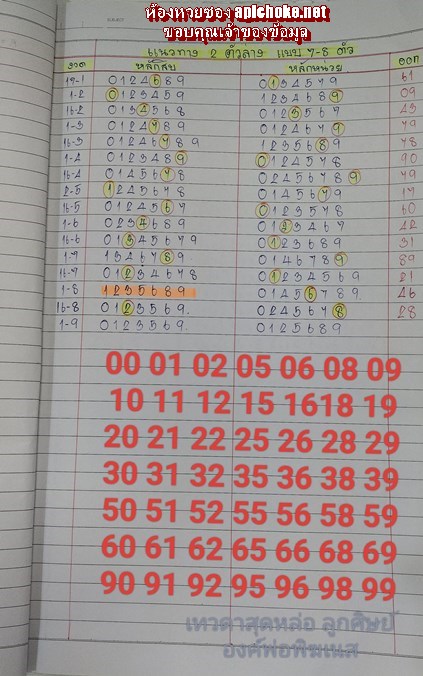 ห้องหวยซอง apichoke.net
ขอบคุณเจ้าของข้อมูล
แนวทาง 2 ตัวล่าง แบบ 7-8 ตัว
งวด หลักสิบ หลักหน่วย ออก
17-1 0124689 0134579 61
1-2 0123459 1234689 09
16-2 0134568 0123567 43
1-3 0124789 0124679 79
16-3 01246789 1235689 78
1-4 0123489 0124578 90
16-4 0145678 01456789 79
2-5 0124578 0145679 17
16-5 0124567 0123578 60
1-6 0234689 0123467 42
16-6 01345679 0123689 31
1-7 1346789 0146789 89
16-7 01234678 01245569 21
1-8 1235689 01456789 26
16-8 0123569 01245678 28
1-9 0123569 0125689
00 01 02 05 06 08 09
10 11 12 15 1618 19
20 21 22 25 26 28 29
30 31 32 35 36 38 39
50 51 52 55 56 58 59
60 61 62 65 66 68 69
90 91 92 95 96 98 99
เทวดาสุดหล่อ ลูกศิษย์
องค์พ่อพิฆเนส